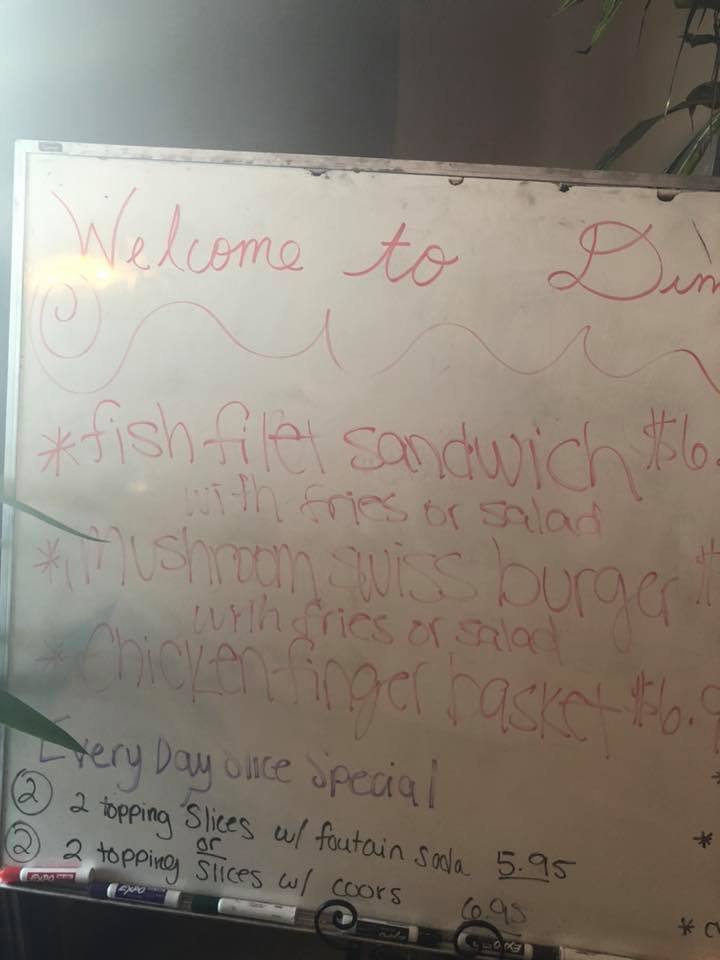 Welcome to Dim
*fish filet sandwich $6.
with fries or salad
*Mushroom swiss burger $
with fries or salad
*Chicken finger basket $6.9
Every Day Slice Special
② 2 topping Slices w/ foutain soda 5.95
or
② 2 topping slices w/ coors 6.95
EXPO
EXPO
*
*